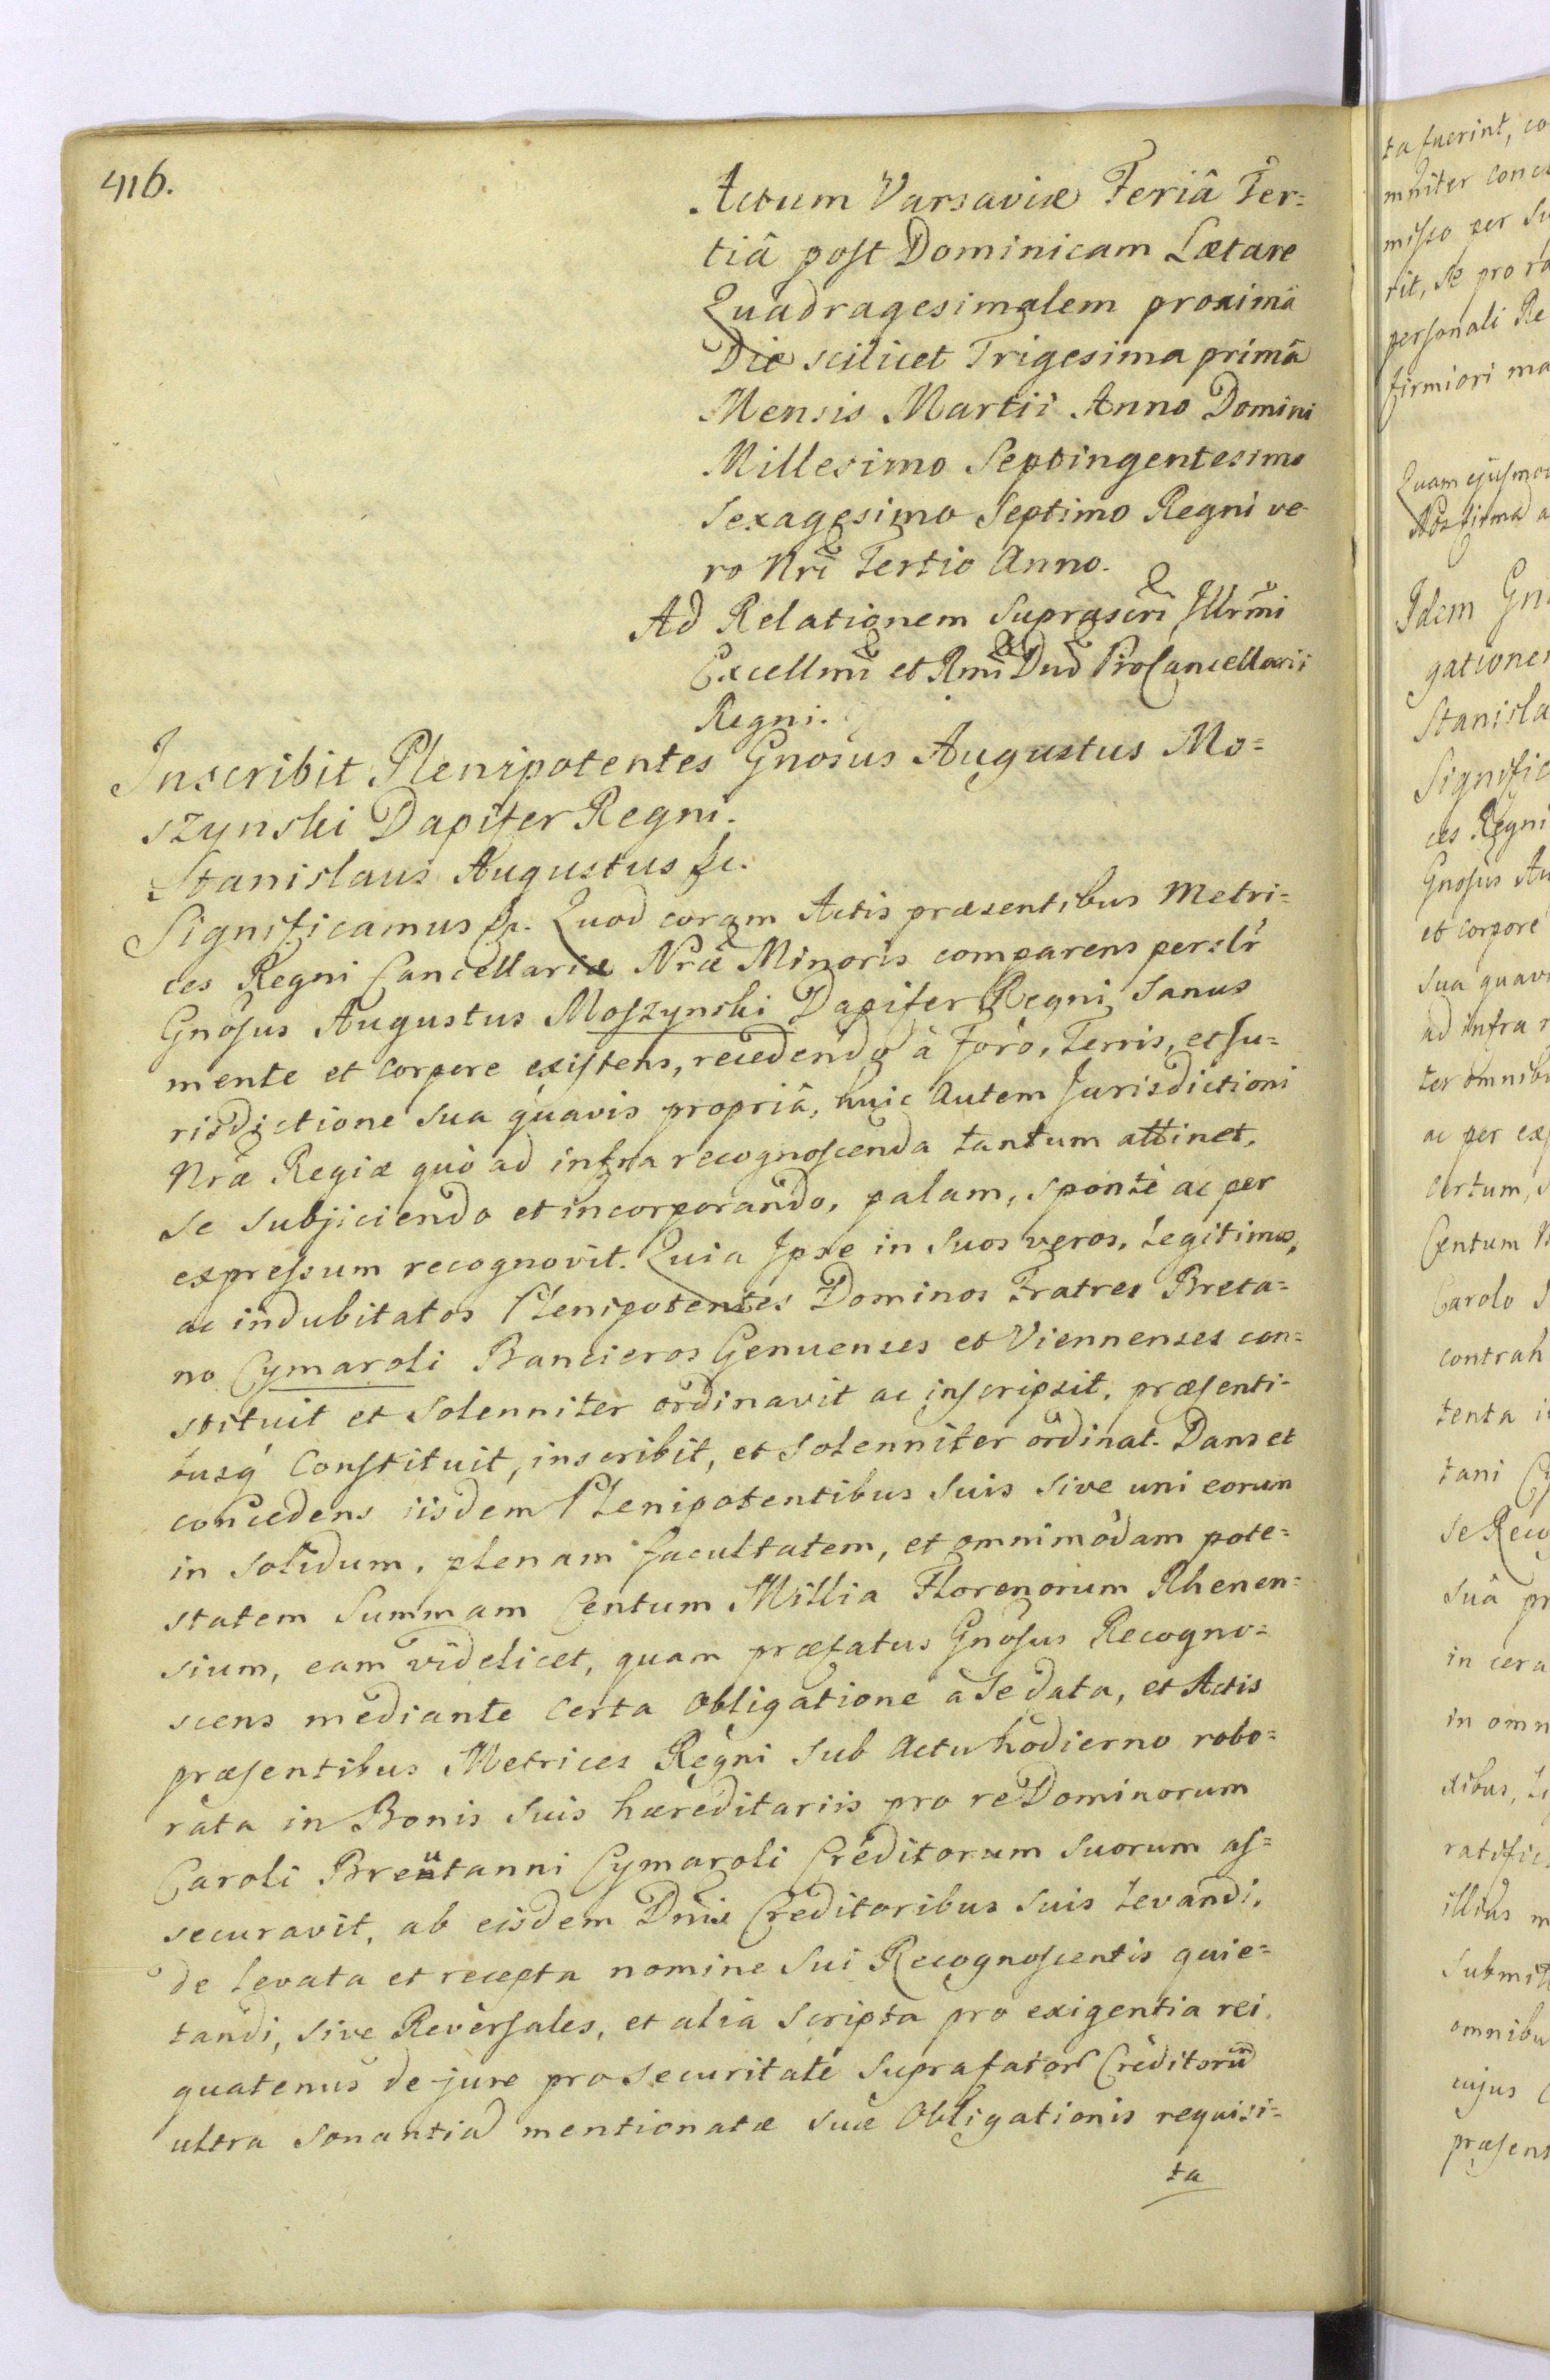 416.
Actum Varsaviæ Feriâ Ter=
tiâ post Dominicam Lætare
Quadragesimalem proximâ
Die scilicet Trigesima primâ
Mensis Martii Anno Domini
Millesimo Septingentesimo
Sexagesimo Septimo Regni ve-
ro Nri Tertio Anno.
Ad Relationem Suprascri Illrmi
Excellmi et Rmi Dni ProCancellarii
Regni.
Inscribit Plenipotentes Gnosus Augustus Mo=
szynski Dapifer Regni.
Stanislaus Augustus &c.
Significamus &c. Quod coram Actis præsentibus Metri=
ces Regni Cancellariæ Nræ Minoris comparens perslr
Gnosus Augustus Moszynski Dapifer Regni Sanus
mente et corpore existens, recedendo à Foro, Terris, et Ju=
risdictione sua quavis propriâ, huic autem Jurisdictioni
Nræ Regiæ quò ad infra recognoscenda tantum attinet,
se subjiciendo et incorporando, palam, sponte ac per
expressum recognovit. Quia Ipse in Suos veros, Legitimos,
ac indubitatos Plenipotentes Dominos Fratres Breta=
no Cymaroli Bancieros Genuenses et Viennenses con=
stituit et Solenniter ordinavit ac inscripsit, præsenti-
busq Constituit, inscribit, et Solenniter ordinat. Dans et
concedens iisdem Plenipotentibus Suis Sive uni eorum
in Solidum, plenam facultatem, et omnimodam pote=
statem Summam Centum Millia Florenorum Rhenen=
sium, eam videlicet, quam præfatus Gnosus Recogno=
scens mediante Certa Obligatione à Se data, et Actis
præsentibus Metrices Regni Sub Actu hodierno robo=
rata in Bonis Suis hæreditariis pro re Dominorum
Caroli Breutanni Cymaroli Creditorum Suorum as=
securavit, ab eisdem Dnis Creditoribus Suis Levandi,
de Levata et recepta nomine Sui Recognoscentis quie=
tandi, Sive Reversales, et alia Scripta pro exigentia rei
quatenus de jure pro Securitate Suprafator Creditorum
ultra Sonantia mentionatæ Suæ Obligationis requisi=
ta
ta fuerint, co
mniter conc
misso per Su
rit, Se pro ra
personali Re
firmiori ma
Quam ejusmo
Idem Gn
gatione
Stanisla
Signific
ces Regni
Gnosus Au
et corpore
Sua quavi
ad infra r
ter omnib
ac per ex
certum,
Centum
Carolo
contrah
tenta i
tani Cy
Se Reco
Suâ pr
in cera
in omn
xibus, L
ratific
illius m
Submit
omnibu
cujus
præsens